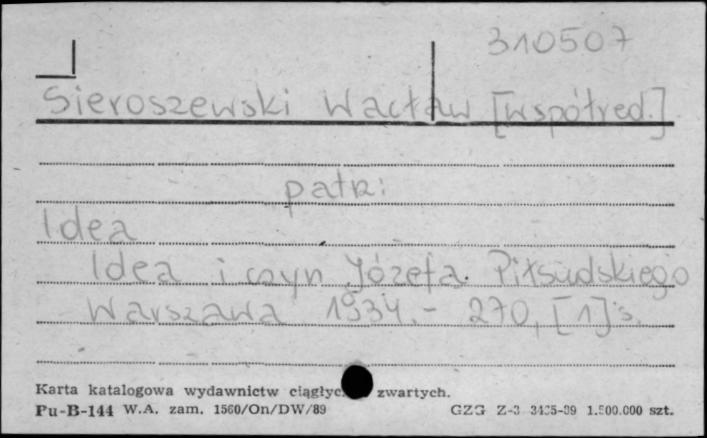 310507
Sieroszewski Wacław [współred.]
patrz:
Idea
Idea i czyn Józefa Piłsudskiego
Warszawa 1934.- 270, [1] s.
Karta katalogowa wydawnictw zwartych.
Pu-B-144 W.A. zam. 1560/On/DW/89 GZG Z-3 1.500.000 szt.